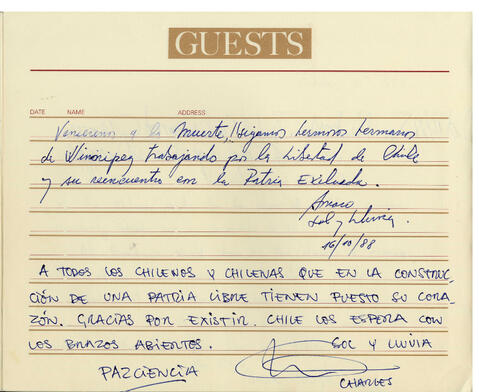 GUESTS
DATE NAME ADDRESS
Venceremos y la Muerte, !!sigamos hermosos hermanos
de Winnipeg trabajando por la libertad de Chile
y su reencuentro con la Patria Exiliada.
Amaro
Sol y Lluvia.
16/10/88
A TODOS LOS CHILENOS Y CHILENAS QUE EN LA CONSTRUC-
CIÓN DE UNA PATRIA LIBRE TIENEN PUESTO SU CORA-
ZÓN. GRACIAS POR EXISTIR. CHILE LOS ESPERA CON
LOS BRAZOS ABIERTOS.
SOL Y LLUVIA
PAZCIENCIA
CHARLES